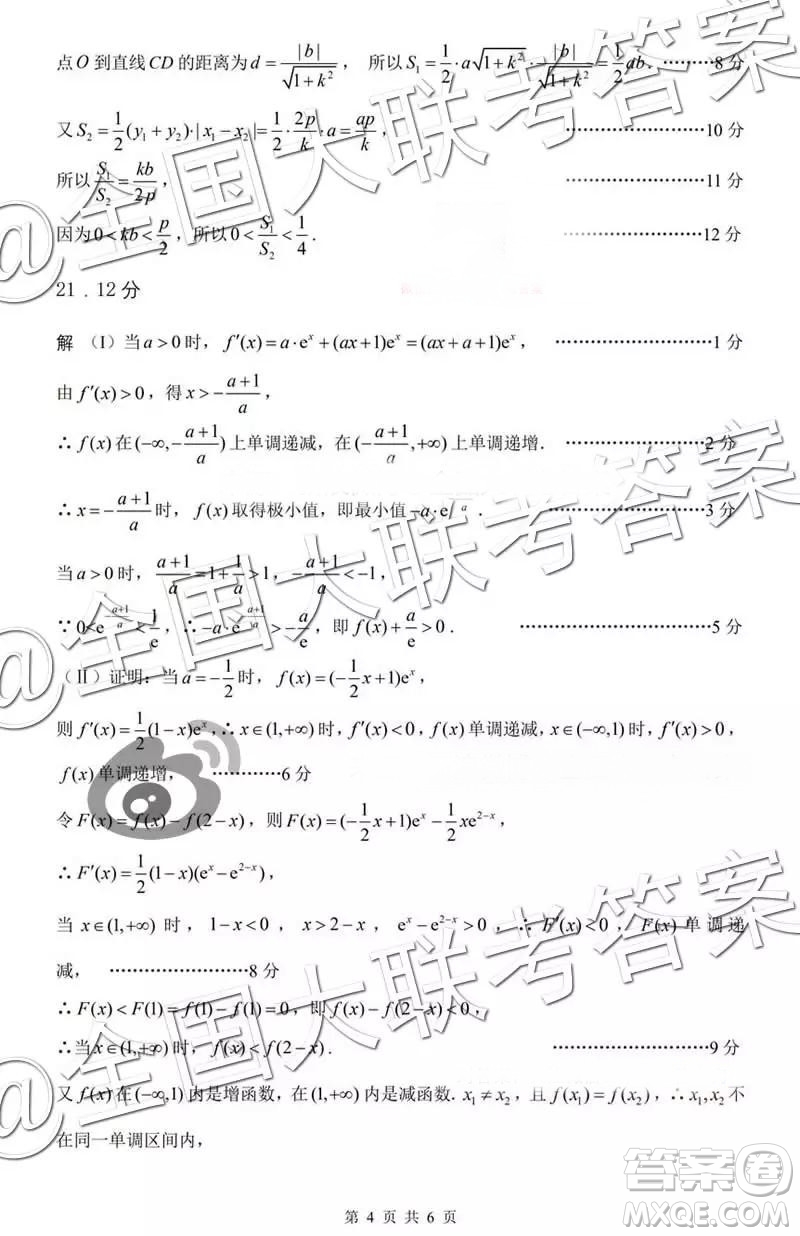 点O到直线CD的距离为d=|b|/√(1+k²)， 所以S₁=1/2·a√(1+k²)·|b|/√(1+k²)=1/2ab．………8分
又S₂=1/2(y₁+y₂)·|x₁−x₂|=1/2·2p/k·a=ap/k， ………………………10分
所以S₁/S₂=kb/2p， ………………………11分
因为0<kb<p/2，所以0<S₁/S₂<1/4． ………………………12分
21．12分
解 （I）当a>0时，f′(x)=a·eˣ+(ax+1)eˣ=(ax+a+1)eˣ， …………………………1分
由f′(x)>0，得x>−(a+1)/a，
∴f(x)在(−∞,−(a+1)/a)上单调递减，在(−(a+1)/a,+∞)上单调递增． ………………………2分
∴x=−(a+1)/a时，f(x)取得极小值，即最小值−a·e ．………………………3分
当a>0时，(a+1)/a=1+1/a>1，−(a+1)/a<−1，
∵0<e^(−(a+1)/a)<1/e，∴−a·e^(−(a+1)/a)>−a/e，即f(x)+a/e>0． ………………………5分
（Ⅱ）证明：当a=−1/2时，f(x)=(−1/2x+1)eˣ，
则f′(x)=1/2(1−x)eˣ，∴x∈(1,+∞)时，f′(x)<0，f(x)单调递减，x∈(−∞,1)时，f′(x)>0，
f(x)单调递增， …………6分
令F(x)=f(x)−f(2−x)，则F(x)=(−1/2x+1)eˣ−1/2xe^(2−x)，
∴F′(x)=1/2(1−x)(eˣ−e^(2−x))，
当x∈(1,+∞)时，1−x<0，x>2−x，eˣ−e^(2−x)>0，∴F′(x)<0，F(x)单调递
减， ………………………8分
∴F(x)<F(1)=f(1)−f(1)=0，即f(x)−f(2−x)<0，
∴当x∈(1,+∞)时，f(x)<f(2−x)． ………………………9分
又f(x)在(−∞,1)内是增函数，在(1,+∞)内是减函数．x₁≠x₂，且f(x₁)=f(x₂)，∴x₁,x₂不
在同一单调区间内，
第 4 页 共 6 页
@全国大联考答案
@全国大联考答案
答案卷
MXQE.COM